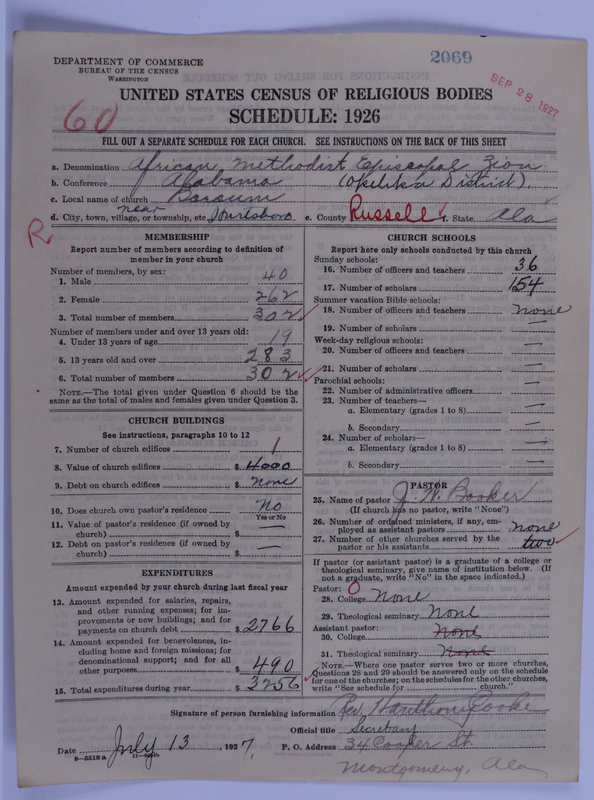 DEPARTMENT OF COMMERCE
BUREAU OF THE CENSUS
WASHINGTON
2069
SEP 28 1927
60
UNITED STATES CENSUS OF RELIGIOUS BODIES
SCHEDULE: 1926
FILL OUT A SEPARATE SCHEDULE FOR EACH CHURCH. SEE INSTRUCTIONS ON THE BACK OF THIS SHEET
a. Denomination African Methodist Episcopal Zion
b. Conference Alabama (Opelika District)
c. Local name of church
d. City, town, village, or township, etc. near Hurtsboro e. County Russell f. State Ala
R
MEMBERSHIP
Report number of members according to definition of member in your church
Number of members, by sex:
1. Male 40
2. Female 262
3. Total number of members 302
Number of members under and over 13 years old:
4. Under 13 years of age 19
5. 13 years old and over 283
6. Total number of members 302
NOTE.—The total given under Question 6 should be the
same as the total of males and females given under Question 3.
CHURCH BUILDINGS
See instructions, paragraphs 10 to 12
7. Number of church edifices 1
8. Value of church edifices $ 4000
9. Debt on church edifices $ none
10. Does church own pastor's residence No
Yes or No
11. Value of pastor's residence (if owned by
church) $ —
12. Debt on pastor's residence (if owned by
church) $ —
EXPENDITURES
Amount expended by your church during last fiscal year
13. Amount expended for salaries, repairs,
and other running expenses; for im-
provements or new buildings; and for
payments on church debt $ 2766
14. Amount expended for benevolences, in-
cluding home and foreign missions; for
denominational support; and for all
other purposes $ 490
15. Total expenditures during year $ 3256
CHURCH SCHOOLS
Report here only schools conducted by this church
Sunday schools:
16. Number of officers and teachers 36
17. Number of scholars 154
Summer vacation Bible schools:
18. Number of officers and teachers none
19. Number of scholars —
Week-day religious schools:
20. Number of officers and teachers —
21. Number of scholars —
Parochial schools:
22. Number of administrative officers —
23. Number of teachers—
a. Elementary (grades 1 to 8) —
b. Secondary —
24. Number of scholars—
a. Elementary (grades 1 to 8) —
b. Secondary —
PASTOR
25. Name of pastor J. W. Booker
(If church has no pastor, write "None")
26. Number of ordained ministers, if any, em-
ployed as assistant pastors none
27. Number of other churches served by the
pastor or his assistants two
If pastor (or assistant pastor) is a graduate of a college or
theological seminary, give name of institution below. (If
not a graduate, write "No" in the space indicated.)
Pastor: O
28. College None
29. Theological seminary None
Assistant pastor:
30. College None
31. Theological seminary None
NOTE.—Where one pastor serves two or more churches,
Questions 28 and 29 should be answered only on the schedule
for one of the churches; on the schedules for the other churches,
write "See schedule for church."
Signature of person furnishing information Rev. Hawthorn
Official title Secretary
Date July 13, 1927. P. O. Address 34 Cooper St.
8—5518 a
Montgomery, Ala